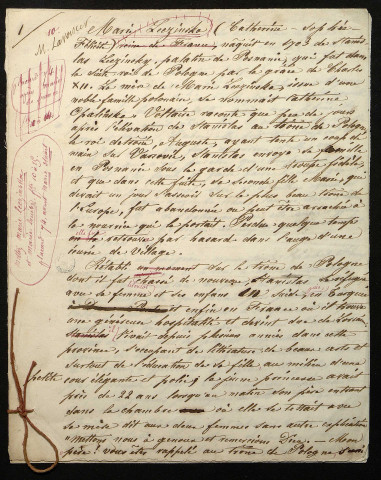 1
M. Lavericot
Marie Leczinska (Catherine-Sophie-
Félicité) reine de France naquit en 1703 de Stanis
las Leczinsky, palatin de Posnanie, qui fut dans
la suite roi de Pologne par la grâce de Charles
XII. La mère de Marie Leczinska, issue d'une
noble famille polonaise, se nommait Catherine
Opalinska. Voltaire raconte que peu de jours
après l'élévation de Stanislas au trône de Pologne,
le roi détrôné, Auguste, ayant tenté un coup de
main sur Varsovie, Stanislas envoya sa famille
en Posnanie sous la garde d'une troupe fidèle,
et que dans cette fuite, sa seconde fille Marie, qui
devait un jour s'asseoir sur le plus beau trône de
l'Europe, fut abandonnée ou peut être arrachée à
la nourrice qui la portait. Perdue quelque temps
retrouvée par hazard dans l'auge d'une
écurie de village.
Rétabli un moment sur le trône de Pologne
dont il fut chassé de nouveau, Stanislas se réfugia
avec sa femme et ses enfans en Suède, en Turquie
et enfin en France où il trouva
une généreuse hospitalité et devint duc de Lorraine
Stanislas vivait depuis plusieurs années dans cette
province, s'occupant de littérature, de beaux arts et
surtout de l'éducation de sa fille au milieu d'une
petite
cour élégante et polie; la jeune princesse avait
près de 22 ans lorsqu'un matin son père entrant
dans la chambre où elle se tenait avec
sa mère dit aux deux femmes sans autre explication
"mettons nous à genoux et remercions Dieu. — Mon
père! vous êtes rappelé au trône de Pologne